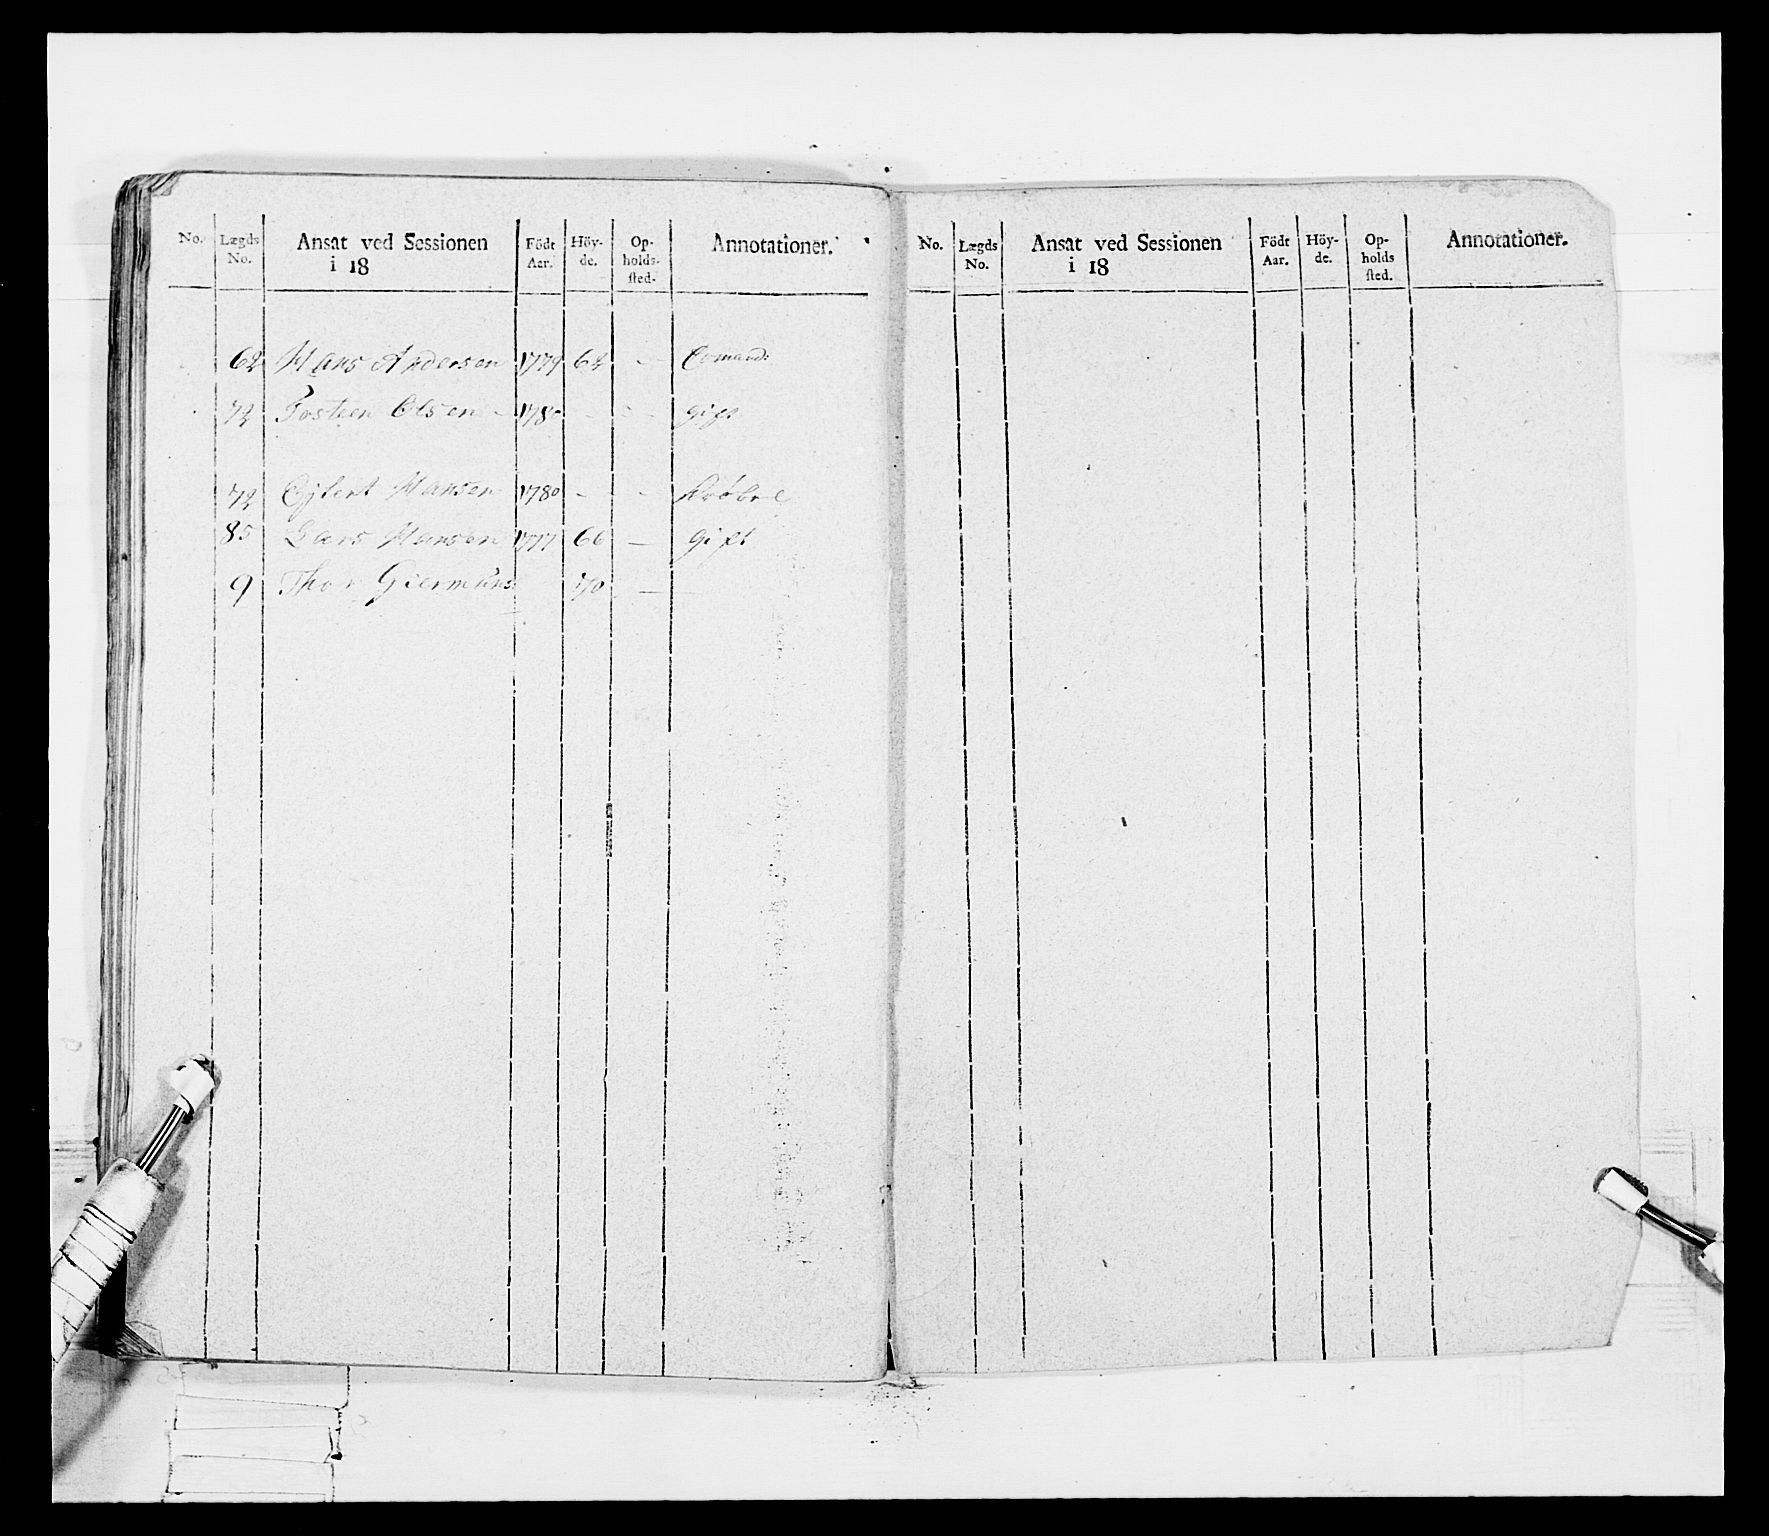 No. Lægds No. Ansat ved Sessionen i 18 Födt Aar. Höy-de. Op-holds-sted. Annotationer.
62 Hans Andersen 1779 62 - Comand:
72 Tosteen Olsen - 1780 - - - gift
72 Ejlert Hansen 1780 - - Dröbak
85 Lars Hansen 1777 66 — gift
9 Thor Giermuns 70 —
No. Lægds No. Ansat ved Sessionen i 18 Födt Aar. Höy-de. Op-holds sted. Annotationer.